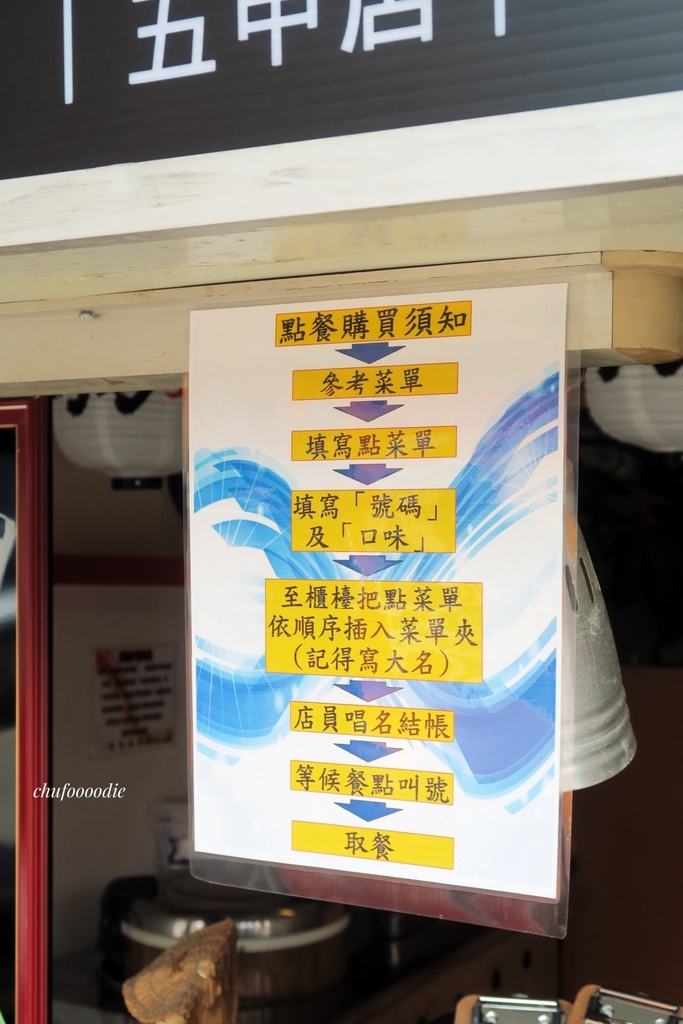 「五甲店」
點餐購買須知
參考菜單
填寫點菜單
填寫「號碼」
及「口味」
至櫃檯把點菜單
依順序插入菜單夾
(記得寫大名)
店員唱名結帳
等候餐點叫號
取餐
chufoooodie